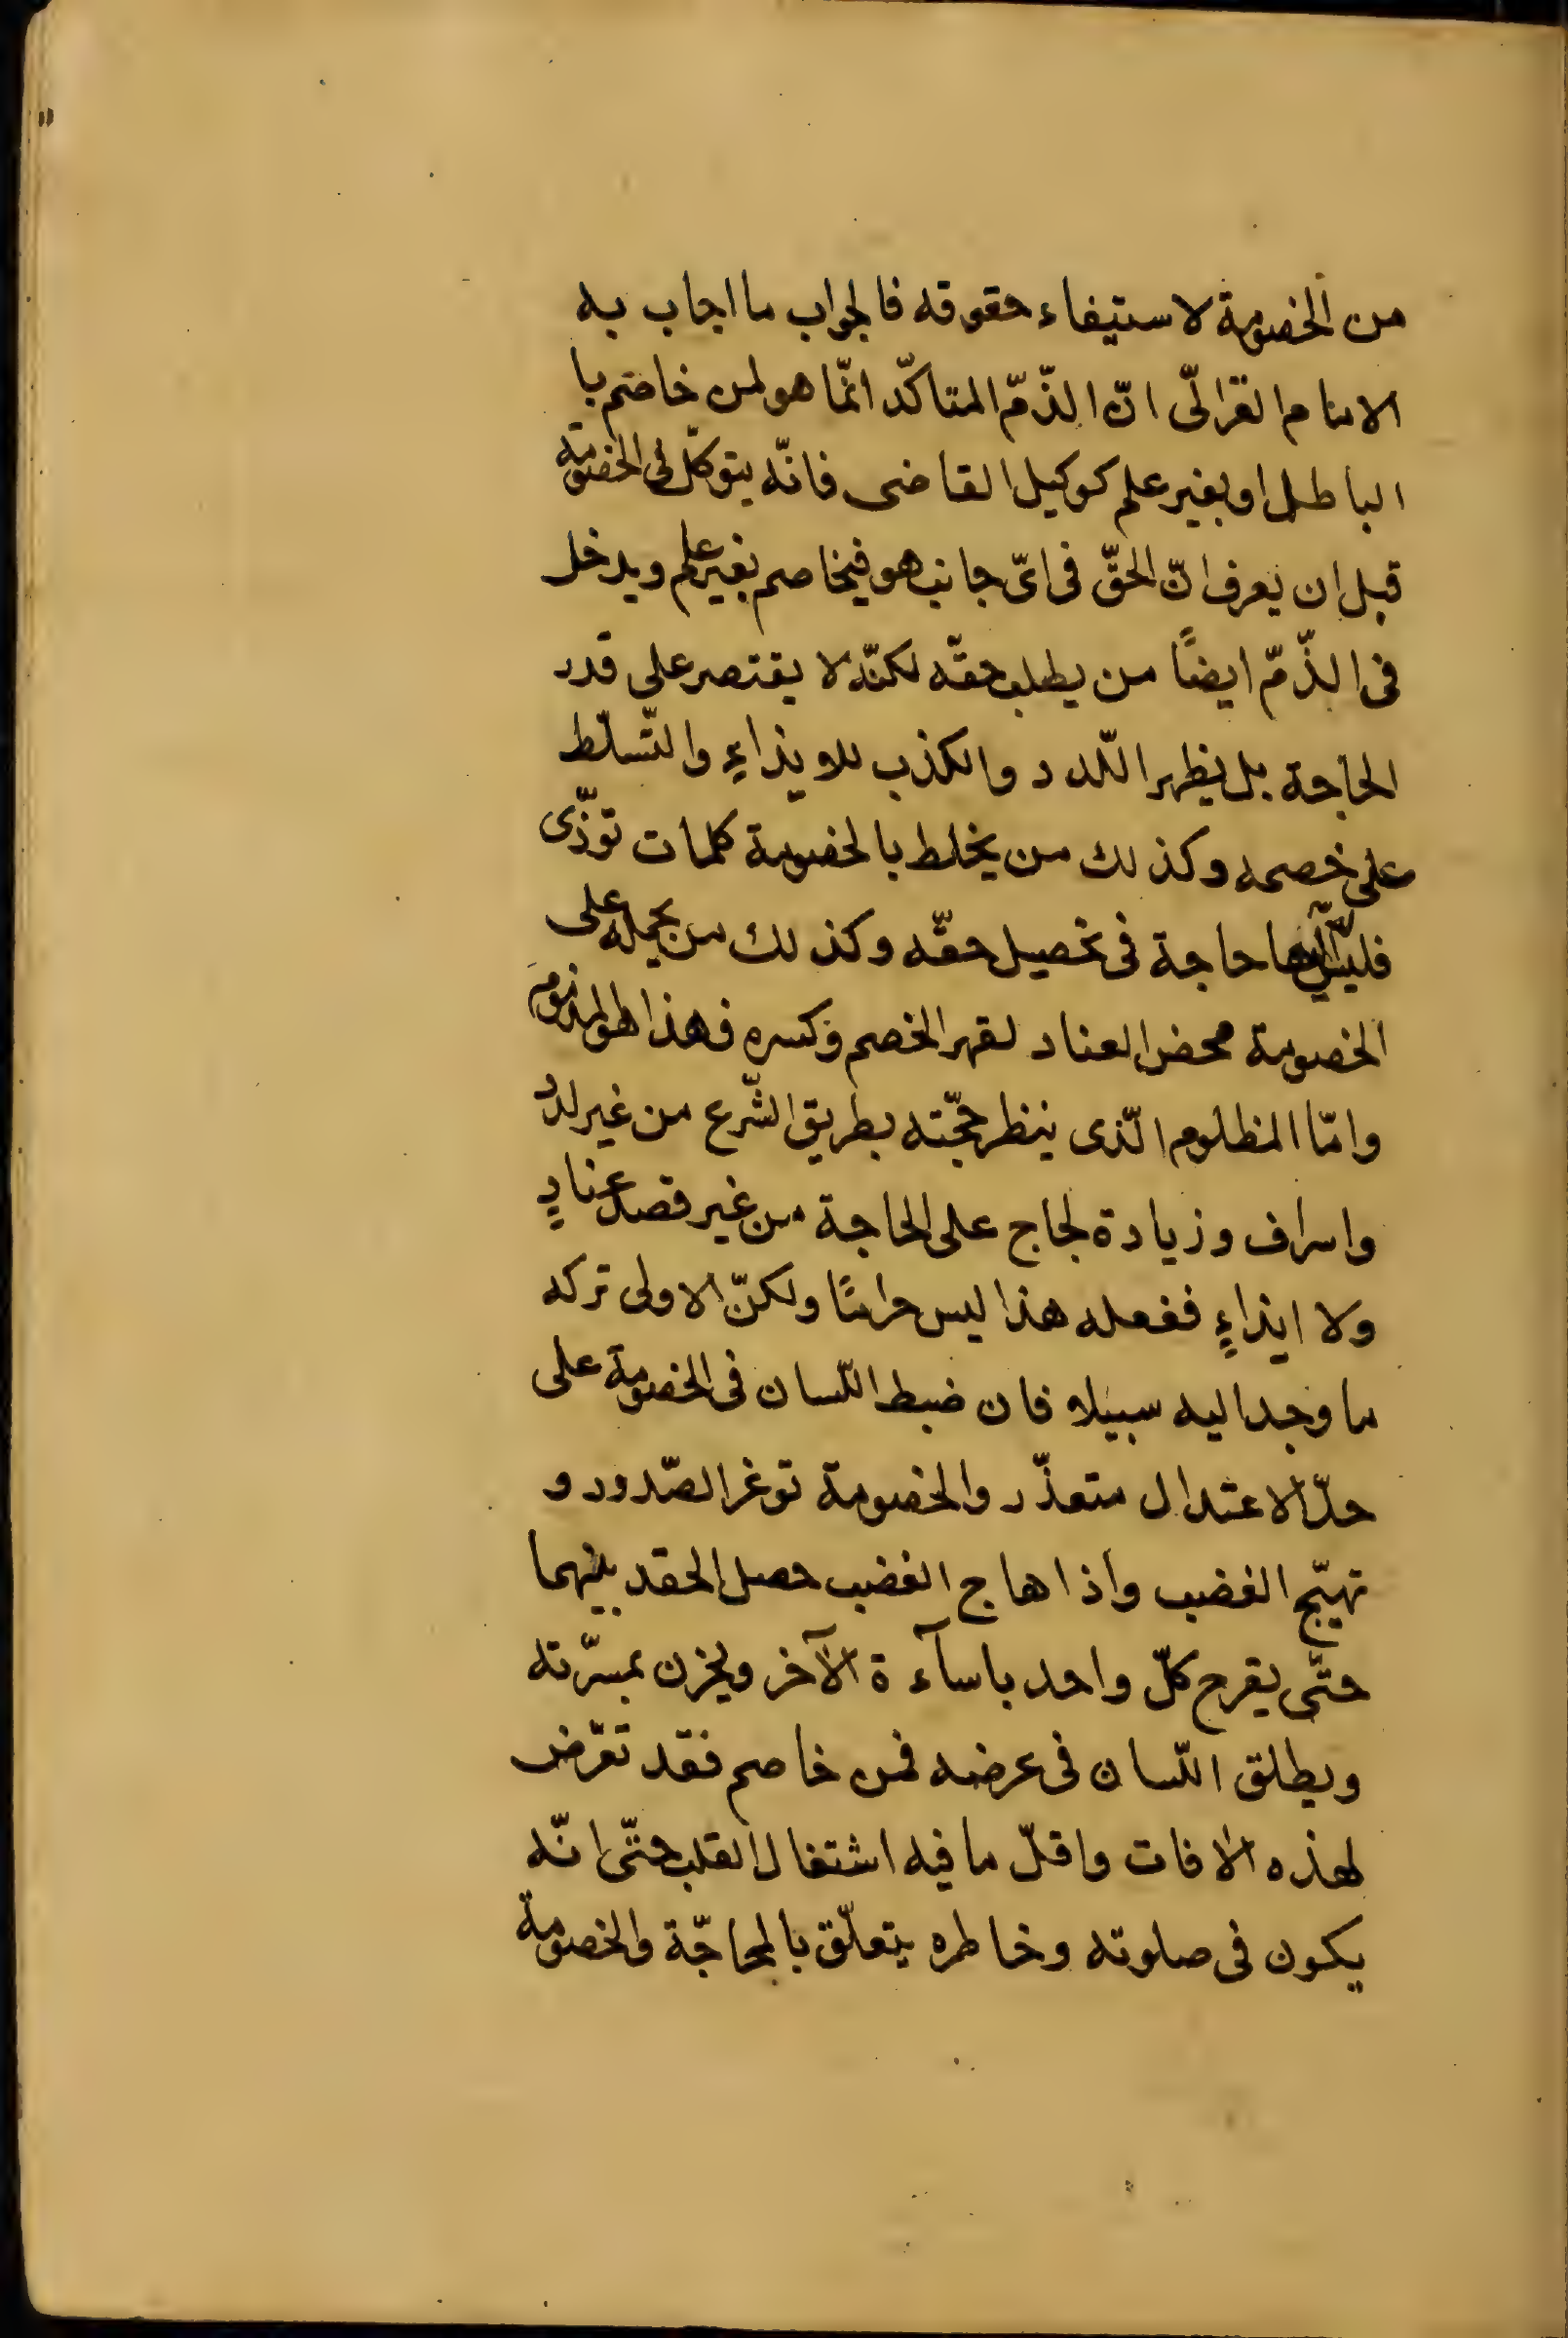 من الخصومة لاستيفاء حقوقه فالجواب ما اجاب به
الامام الغزالّى انّ الذّمّ المتاكّد انّما هو لمن خاصم با
الباطل او بغير علم كوكيل القاضى فانّه يتوكّل فى الخصومة
قبل ان يعرف انّ الحقّ فى اىّ جانب هو فيخاصم بغير علم ويدخل
فى الذّمّ ايضًا من يطلب حقّه لكنّه لا يقتصر على قدر
الحاجة بل يظهر اللّدد والكذب للايذاءِ والتّسلّط
على خصمه وكذلك من يخلط بالخصومة كلمات توّذى
فليس اليها حاجة فى تحصيل حقّه وكذلك من يحمله على
الخصومة محض العناد لقهر الخصم وكسره فهذا هو المذموم
وامّا المظلوم الّذى ينظر حجّته بطريق الشّرع من غير لدد
واسراف وزيادة لجاج على الحاجة من غير قصد عنادٍ
ولا ايذاءٍ ففعله هذا ليس حرامًا ولكنّ الاولى تركه
ما وجد اليه سبيلا فان ضبط اللّسان فى الخصومة على
حدّ الاعتدال متعذّر والخصومة توغر الصّدور و
تهيّج الغضب واذا هاج الغضب حصل الحقد بينهما
حتّى يفرح كلّ واحد باسآءة الآخر ويحزن بمسرّته
ويطلق اللّسان فى عرضه فمن خاصم فقد تعرّض
لهذه الافات واقلّ ما فيه اشتغال القلب حتّى انّه
يكون فى صلوته وخاطره يتعلّق بالمحاجّة والخصومة